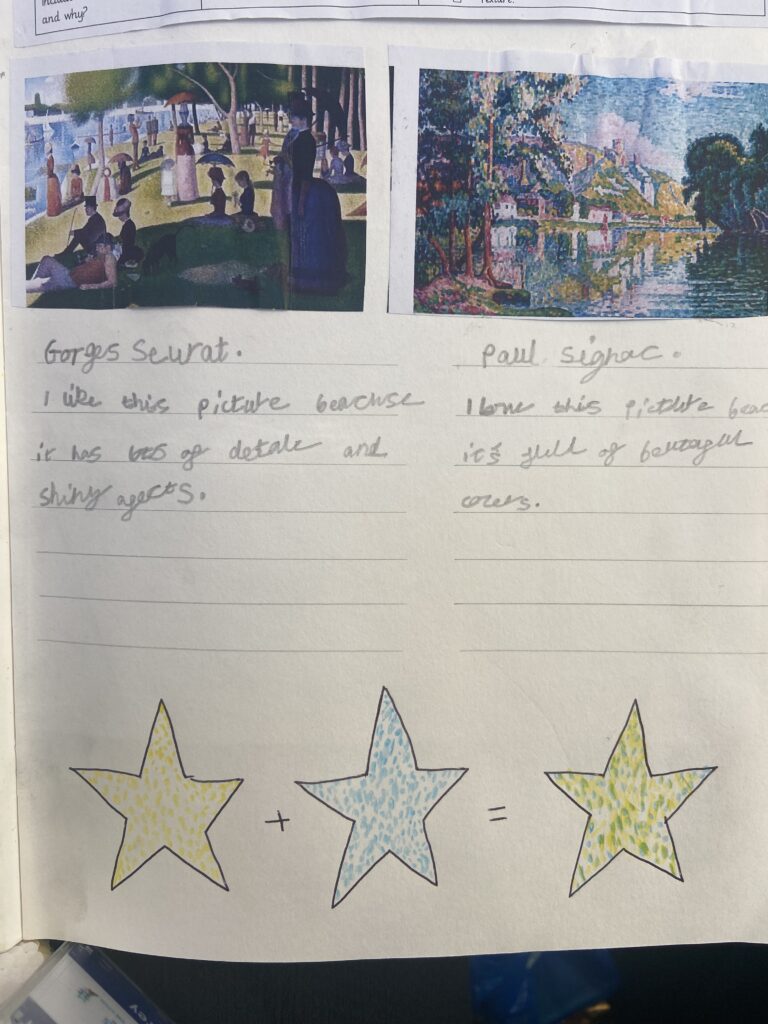 and why?
Texture.
Gorges Seurat.
I like this picture beacuse
it has lots of detale and
shiny agects.
Paul Signac.
I love this pictute beac
it's full of beutagul
colers.
+
=